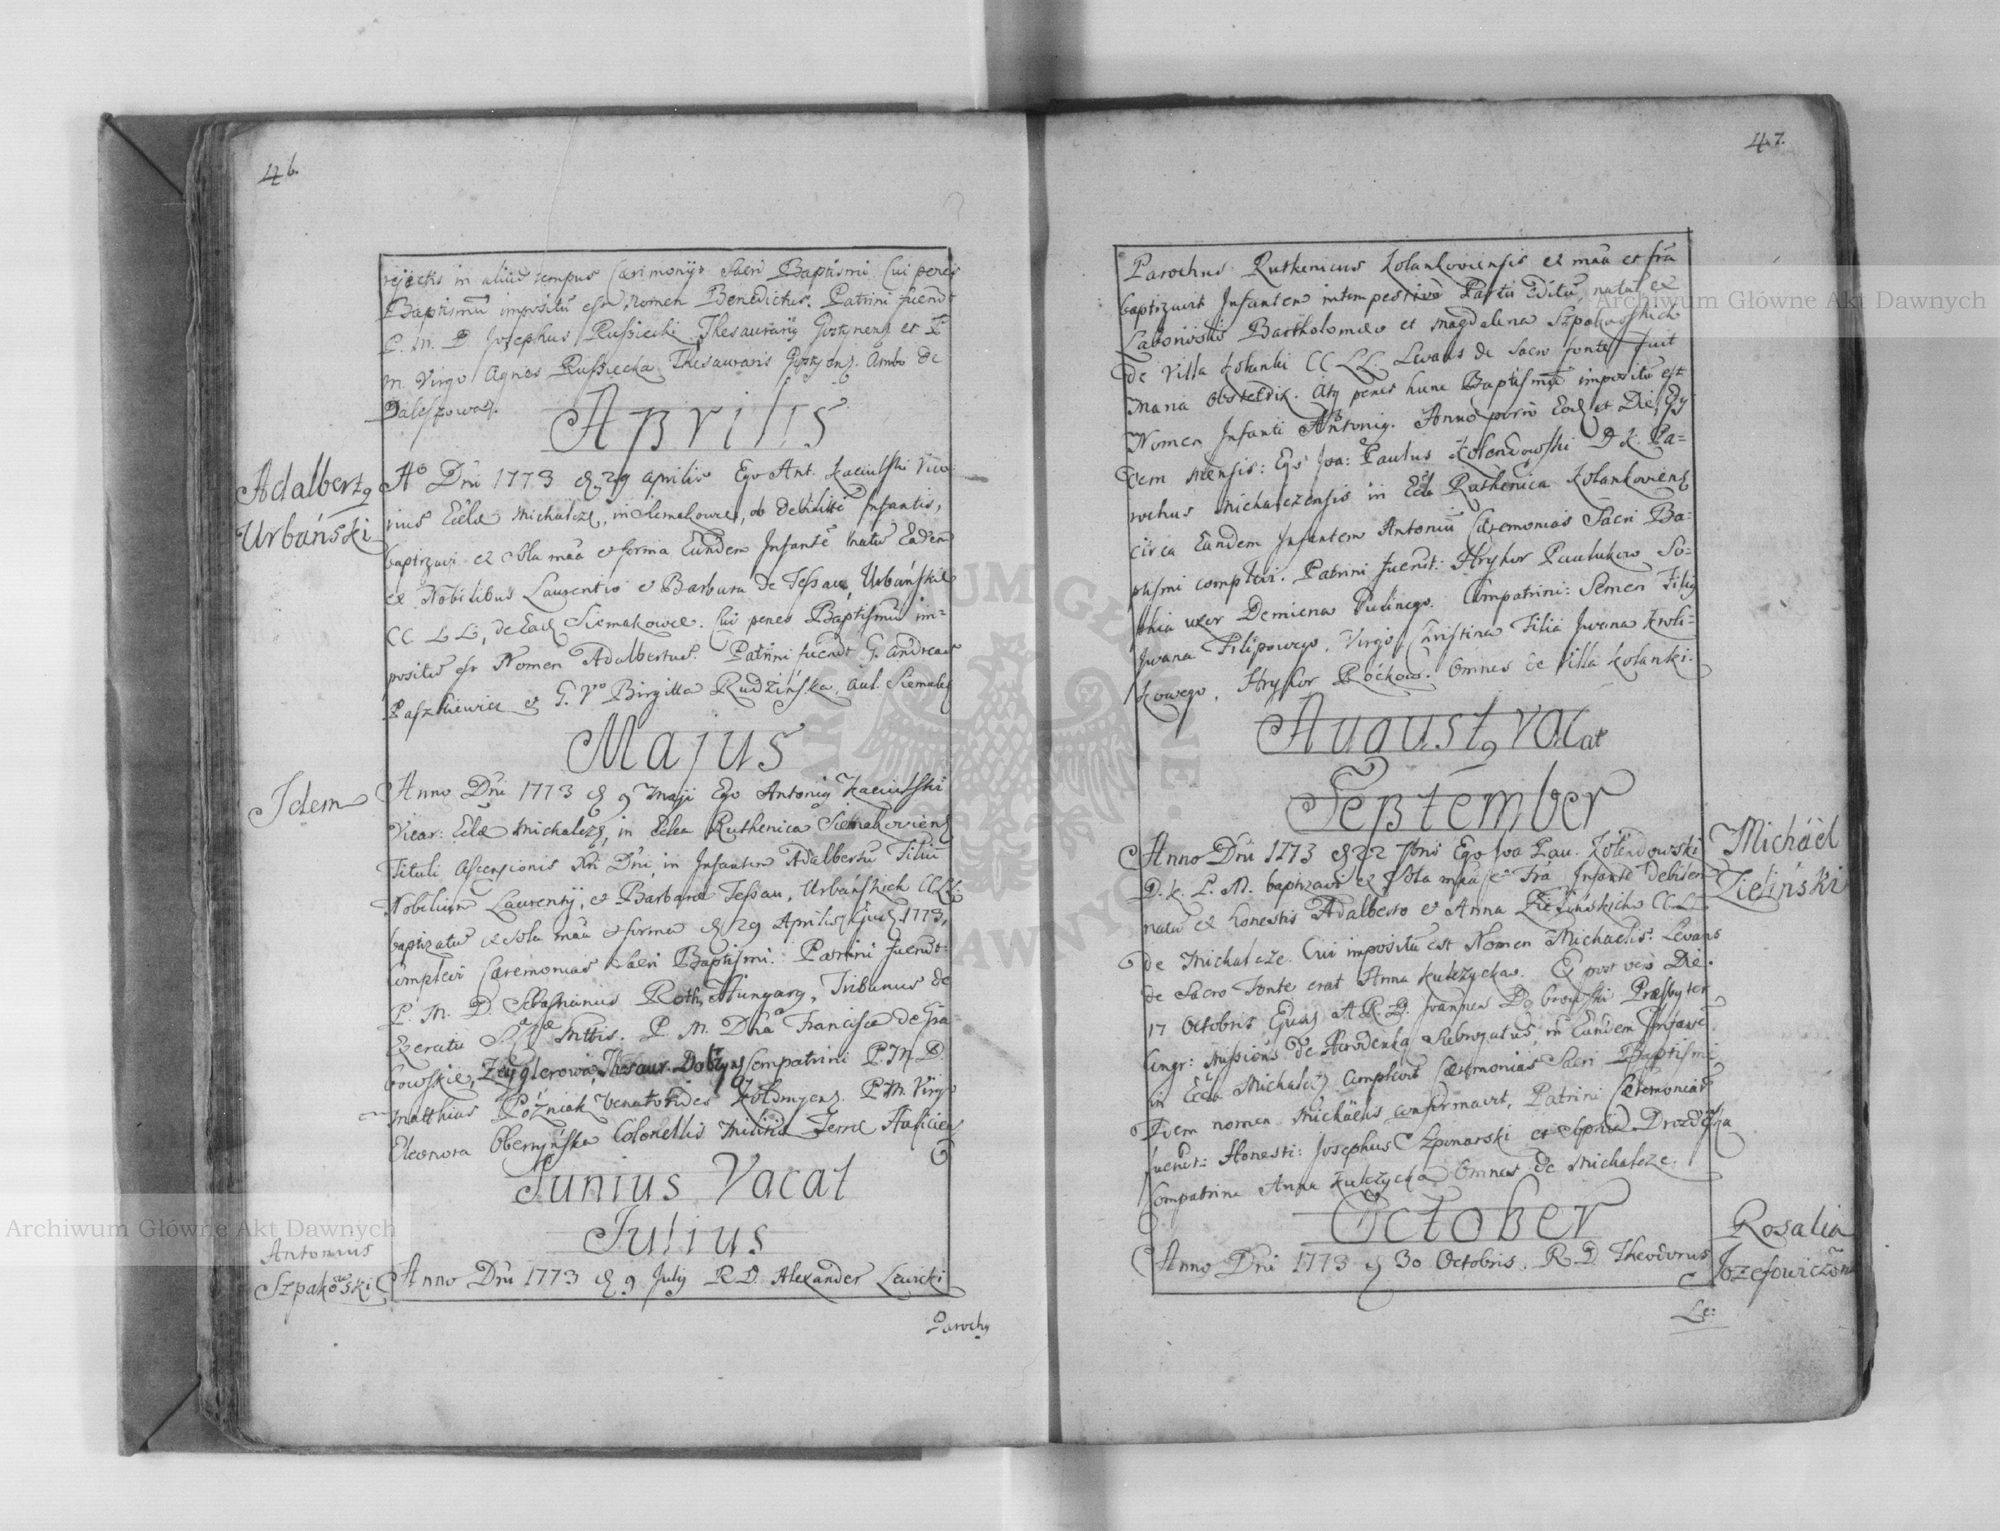 46.
rejectis in aliud tempus Cærimonijs Sacri Baptismi Cui penes
Baptismũ impositũ est Nomen Benedictus. Patrini fuerũt
P. M. D. Josephus Russiecki Thesaurarij Gostynens et P.
M. Virgo Agnes Russiecka Thesauraris Gostyens. Ambo de
Daleszowa.
Aprilis
Adalbert9
Urbański
Aº Dni 1773 d. 29 Aprilis Ego Ant. Kaciulski Vica-
rius Eclæ Michalcze, in Siemakowce, ob debilitẽ Infantis,
baptizavi ex sola mãa et forma Eundem Infantẽ natũ Eadem
ex Nobilibus Laurentio et Barbara de Tessau, Urbańskie
CC LL, de Ead Siemakowce. Cui penes Baptismũ im-
positũ est Nomen Adalbertus. Patrini fuerũt G. Andreas
Paszkiewicz et G. Vº Birgitta Rudzińska, Aul. Siemakoj
Majus
Idem
Anno Dni 1773 d. 9 Maji Ego Antoni9 Kaciulski
Vicar: Eclæ Michalcze, in Eclea Ruthenica Siemakoviens
Tituli Ascensionis Xti Dni, in Infantem Adalbertũ Filiũ
Nobilium Laurentij, et Barbaræ Tessau, Urbańskich CCLL.
baptizatũ ex sola mãa et forma d. 29 Aprilis Ejusd 1773,
Complevi Cæremonias Sacri Baptismi. Patrini fuerũt:
P. M. D. Sebastianus Roth, Hungarg, Tribunus de
Exercitu Mttis. P. M. Dna Francisca de Gra-
bowskie, Zeyglerowa, Thesaur. Dobzyns Compatrini P. M. D.
Matthias Poźniak Venatorides Kołomyens. P. M. Virgo
Eleonora Obertyńska Colonellis Militiæ Terræ Haliciens
Junius Vacat
Julius
Antonius
Szpakowski
Anno Dni 1773 d. 9 Julij R. D. Alexander Lewicki
Paroch9
47.
Parochus Ruthenicus Kolankoviensis ex mãa et frã
baptizavit Infantem intempestivo Partu Editũ, natũ ex
Laboriosis Bartholomæo et Magdalena Szpakowskich
de Villa Kolanki CC LL. Levans de Sacro fonte fuit
Maria Obstetrix. Atq penes hunc Baptismũ impositũ est
Nomen Infanti Antonig. Anno porro Eod et Die, Ey
dem Mensis: Ego Joa: Paulus Kolendowski D. K. Pa-
rochus Michalczensis in Ecla Ruthenica Kolankoviens
circa Eundem Infantem Antoniũ Cæremonias Sacri Ba-
ptismi complevi. Patrini fuerũt: Hryhor Paulukow So-
phia uxor Demiena Compatrini: Semen Filig
Jwana Filipowego, Virgo Christina Filia Jwana Kroli-
kowego, Hryhor Roćkow. Omnes de Villa Kolanki.
August9 vacat
September
Michàèl
Zieliński
Anno Dni 1773 d. 22 7bris Ego Joa Pau. Kolendowski
D. K. P. M. baptizavi ex sola mãa et frã Infantẽ debilem
natũ ex honestis Adalberto et Anna Zielinskich CC LL
de Michalcze. Cui impositũ est Nomen Michaelis: Levans
de Sacro Fonte erat Anna Kukłzycka. Et post vero Die.
17 Octobris Ejusd A. R. D. Joannes Dobrowski Præsbyter
Congr: Missionis de Horodenka Subrogatus, in Eundem Infantẽ
in Ecla Michalcz Complevit Cæremonias Sacri Baptismi
Idem nomen Michaelis confirmavit, Patrini Cæremoniar
fuerũt: Honesti: Josephus Szponarski et Sophia Drozdeska
Compatrini Anna Kukłzycka Omnes de Michalcze.
October
Rosalia
Jozefowiczòn
Anno Dni 1773 d. 30 Octobris. R. D. Theodorus
Le:
Archiwum Główne Akt Dawnych
Archiwum Główne Akt Dawnych
ARCHIWUM GŁÓWNE AKT DAWNYCH